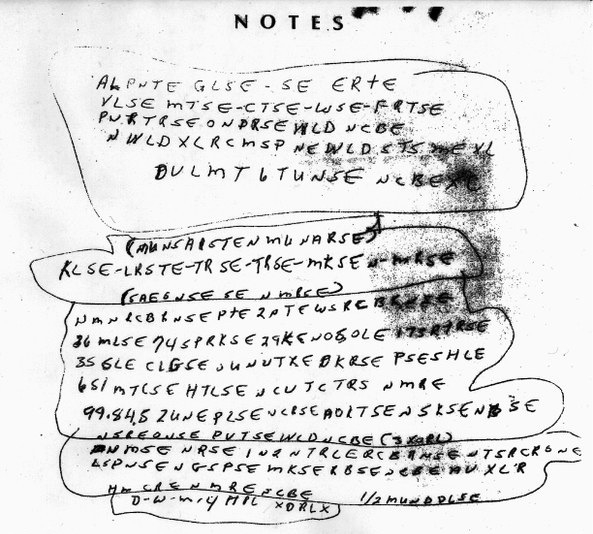 NOTES
ALPNTE GLSE-SE ERTE
VLSE MTSE-CTSE-WSE-FRTSE
PNRTRSEONDRSEWLD NCBE
NWLDXLRCMSP NEWLDSTSMEXL
DULMT6TUNSE NCBEXL
(MUNSAISTENMUNARSE)
KLSE-LRSTE-TRSE-TRSE-MKSEN-MRSE
(SAEGNSESE NMRSE)
NMNRCBRNSEPTE2PTEWSRCBRNSE
36MLSE74SPRKSE29KENOSOLE173RTRSE
35GLE CLGSEOUNUTXEDKRSE PSESHLE
651MTCSE HTLSENCUTCTRS NMRE
99.84.52UNEPLSENCRSEAOLTSENSKSENBSE
NSREONSE PVTSEWLDNCBE(3XORL)
NMSE NRSE IN2NTRLERCBRNSENTSRCRONE
LSPNSENGSPSEMKSERBSENCBEAUXLR
HM CRENMRENCBE 1/2MUNDDLSE
D-W-M-4 MIL XDRLX